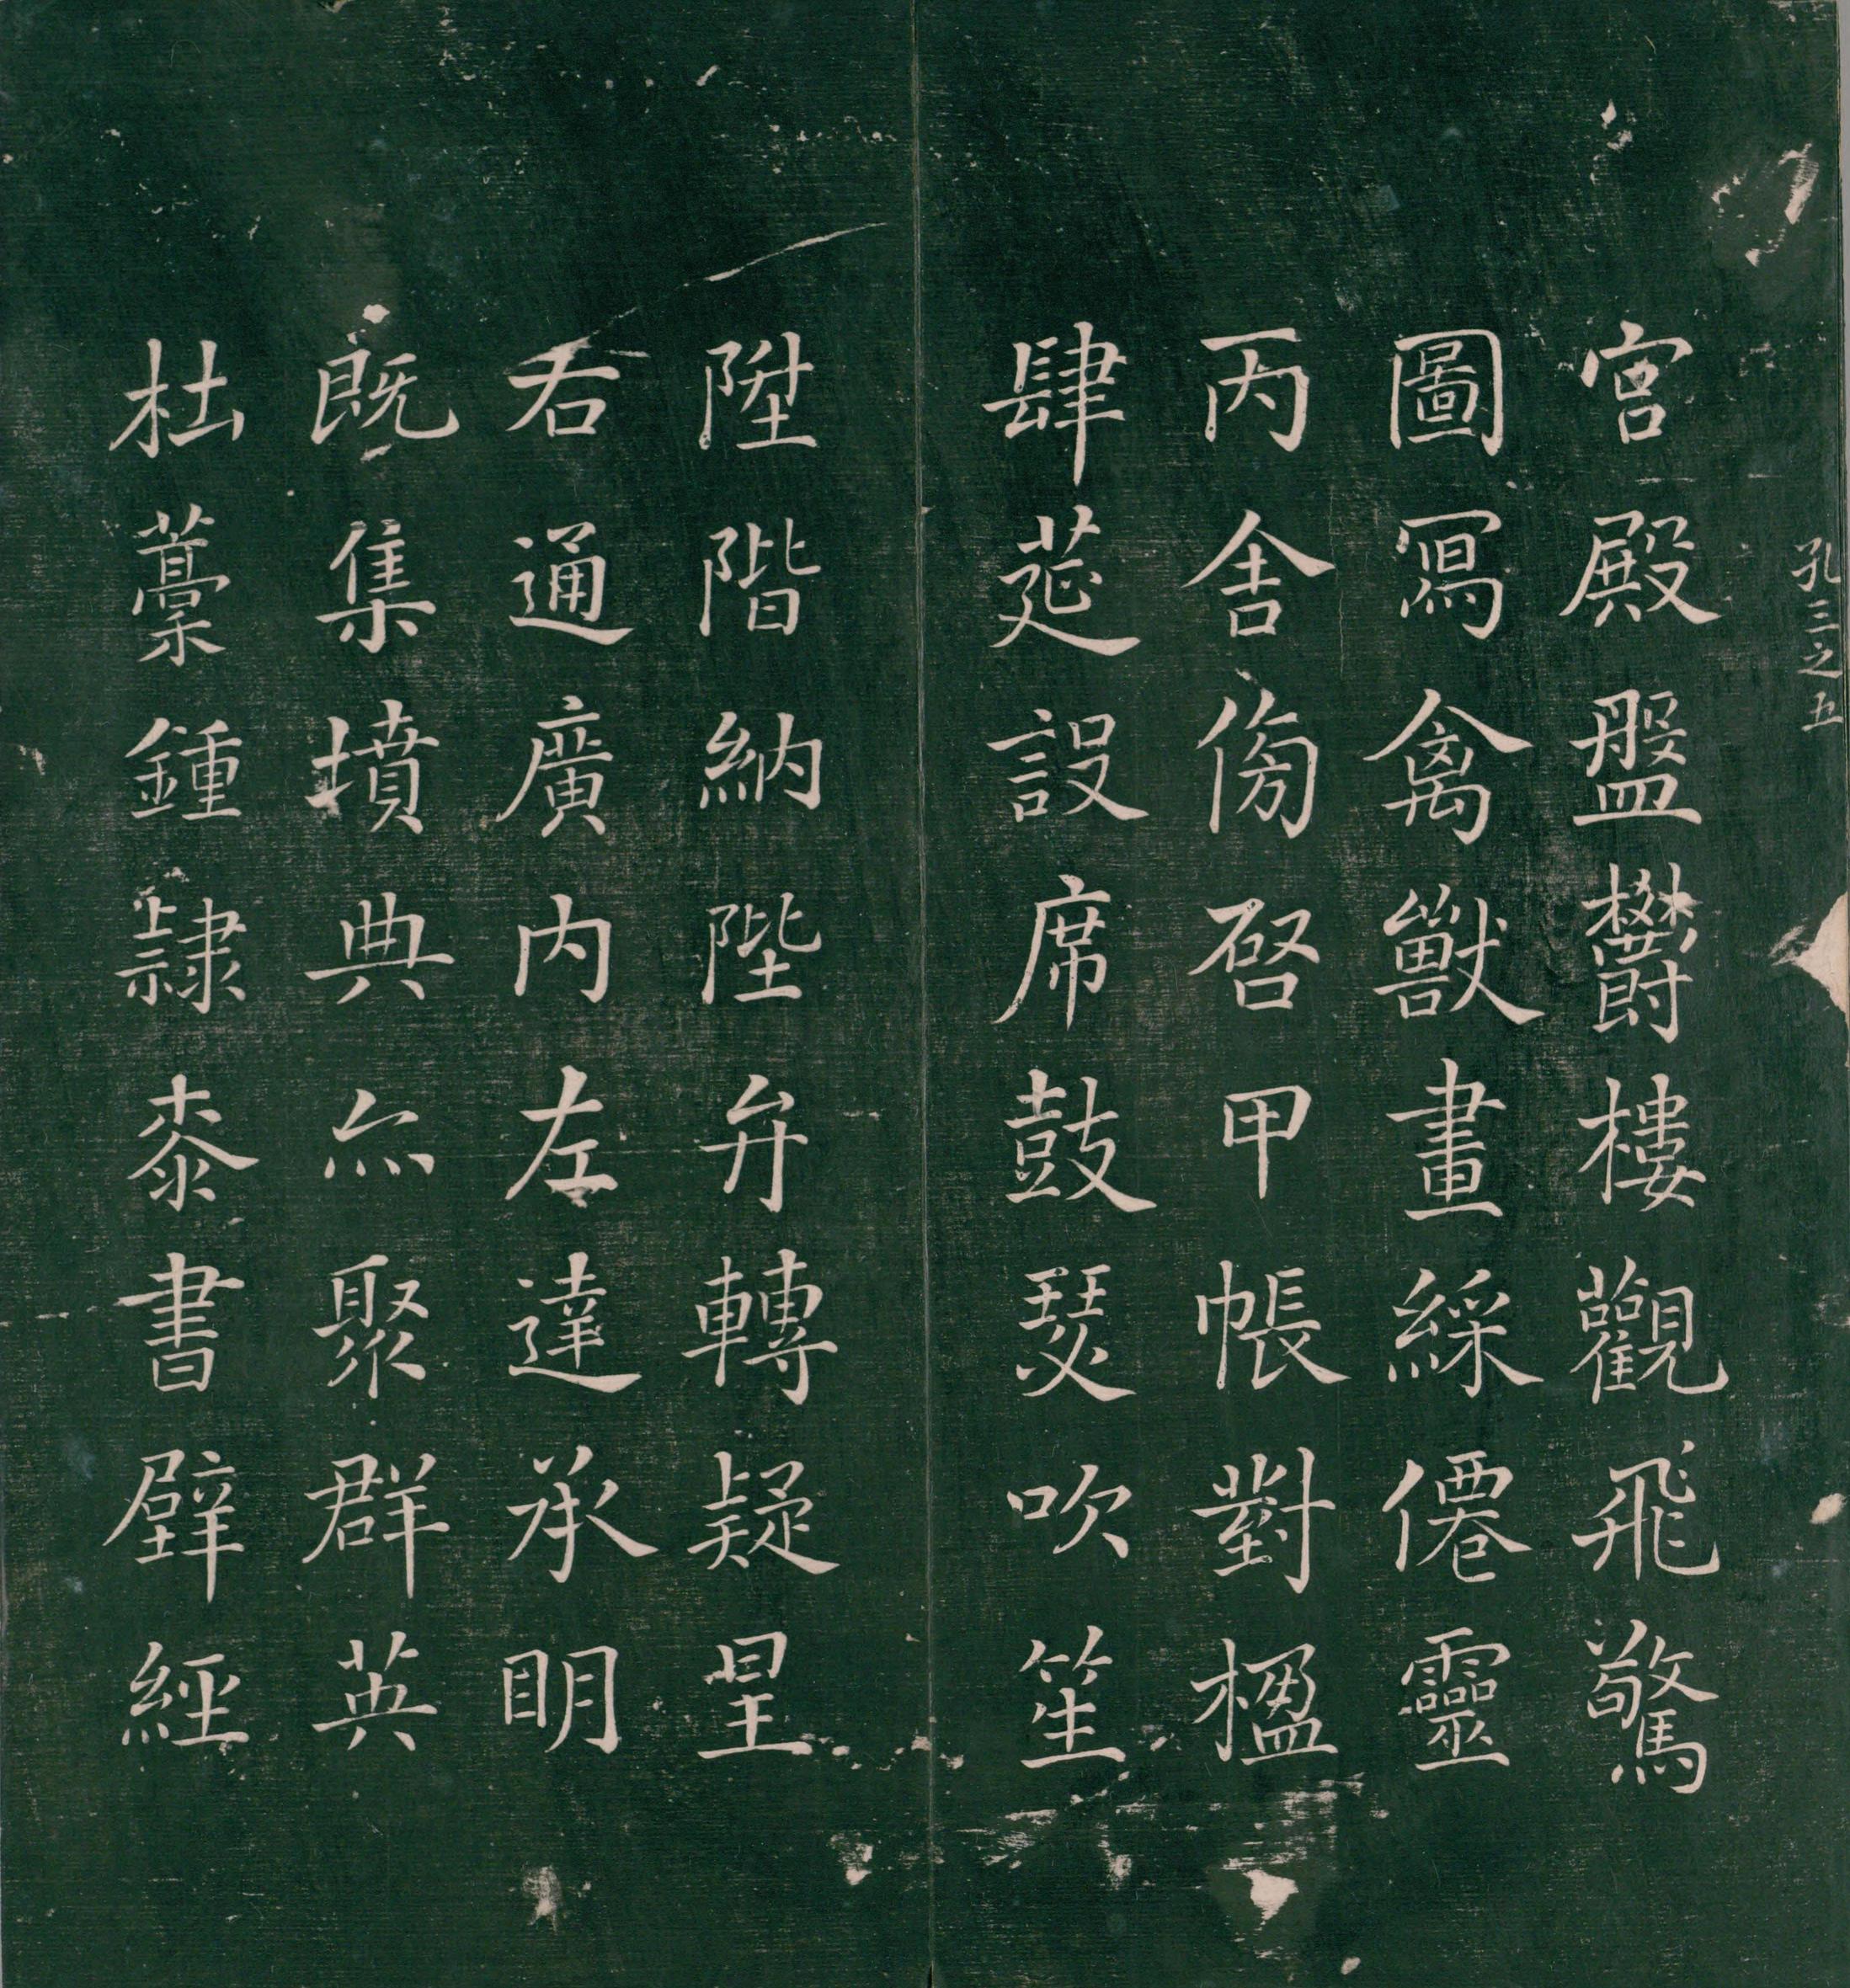 孔三之五
宮殿盤欝樓觀飛驚
圖寫禽獸畫綵僊靈
丙舍傍啓甲帳對楹
肆莚設席鼓瑟吹笙
陞階納陛弁轉疑星
右通廣內左達承明
既集墳典亦聚群英
杜藁鍾隸柒書壁經